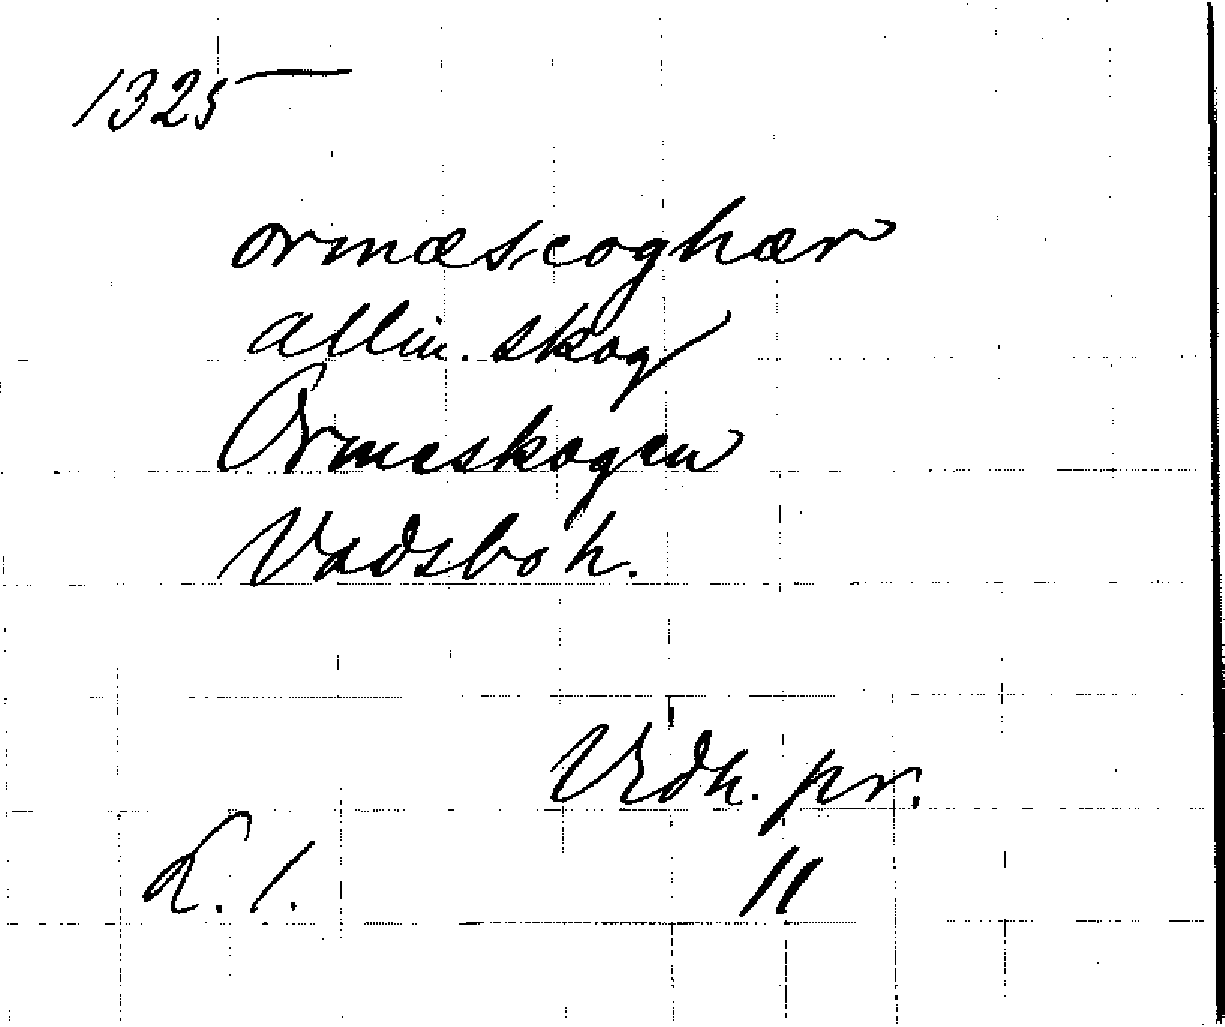 1325
ormæscoghær
allm. skog
Ormeskogen
Vadsbo h.
Vidh. pr.
K. 1. 11